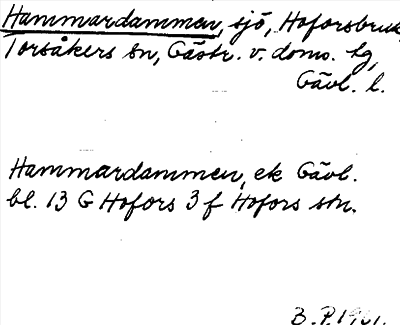 Hammardammen, sjö, Hoforsbruk,
Torsåkers sn, Gästr. v. doms. hg,
Gävl. l.
Hammardammen, ek Gävl.
bl. 13 G Hofors 3 f Hofors stn.
B. P. 1961.